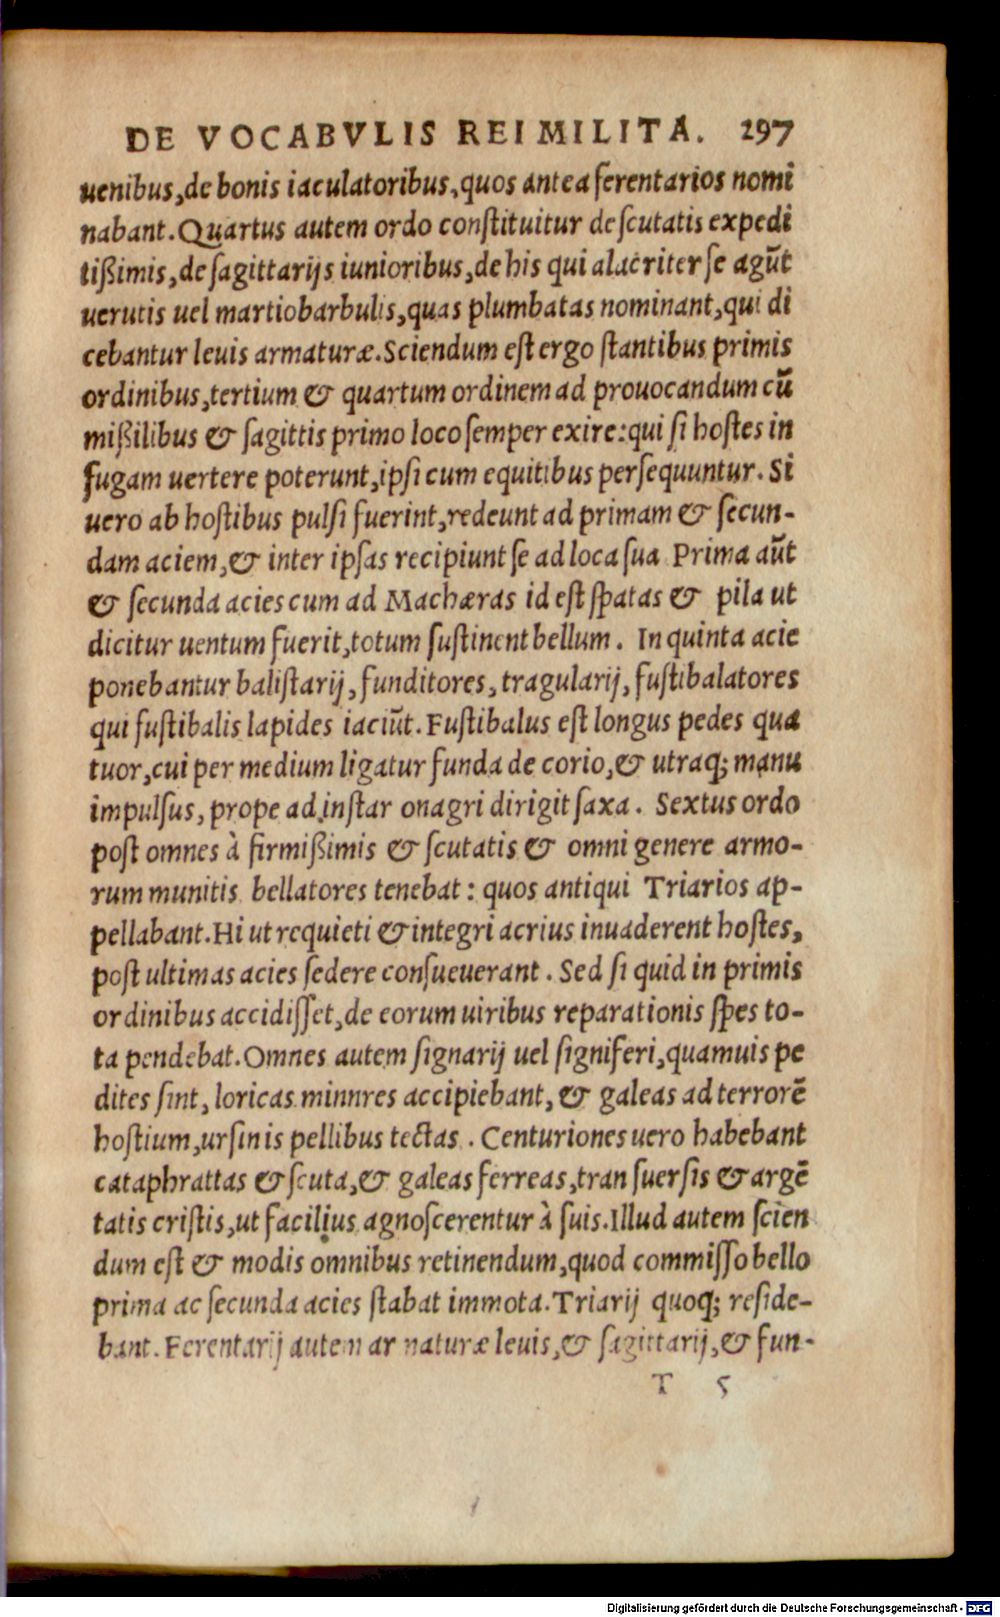 DE VOCABVLIS REI MILITA. 297
uenibus, de bonis iaculatoribus, quos antea ferentarios nomi
nabant. Quartus autem ordo conſtituitur de ſcutatis expedi
tißimis, de ſagittarijs iunioribus, de his qui alacriter ſe agūt
uerutis uel martiobarbulis, quas plumbatas nominant, qui di
cebantur leuis armaturæ. Sciendum eſt ergo ſtantibus primis
ordinibus, tertium & quartum ordinem ad prouocandum cū
mißilibus & ſagittis primo loco ſemper exire: qui ſi hoſtes in
fugam uertere poterunt, ipſi cum equitibus perſequuntur. Si
uero ab hoſtibus pulſi fuerint, redeunt ad primam & ſecun-
dam aciem, & inter ipſas recipiunt ſe ad loca ſua Prima aūt
& ſecunda acies cum ad Machæras id eſt ſpatas & pila ut
dicitur uentum fuerit, totum ſuſtinent bellum. In quinta acie
ponebantur baliſtarij, funditores, tragularij, fuſtibalatores
qui fuſtibalis lapides iaciūt. Fuſtibalus eſt longus pedes qua
tuor, cui per medium ligatur funda de corio, & utraq; manu
impulſus, prope ad inſtar onagri dirigit ſaxa. Sextus ordo
poſt omnes à firmißimis & ſcutatis & omni genere armo-
rum munitis bellatores tenebat: quos antiqui Triarios ap-
pellabant. Hi ut requieti & integri acrius inuaderent hoſtes,
poſt ultimas acies ſedere conſueuerant. Sed ſi quid in primis
ordinibus accidiſſet, de eorum uiribus reparationis ſpes to-
ta pendebat. Omnes autem ſignarij uel ſigniferi, quamuis pe
dites ſint, loricas minnres accipiebant, & galeas ad terrorē
hoſtium, urſinis pellibus tectas. Centuriones uero habebant
cataphrattas & ſcuta, & galeas ferreas, tranſuerſis & argē
tatis criſtis, ut facilius agnoſcerentur à ſuis. Illud autem ſcien
dum eſt & modis omnibus retinendum, quod commiſſo bello
prima ac ſecunda acies ſtabat immota. Triarij quoq; reſide-
bant. Ferentarij autem ar naturæ leuis, & ſagittarij, & fun-
T 5
Digitalisierung gefördert durch die Deutsche Forschungsgemeinschaft - DFG